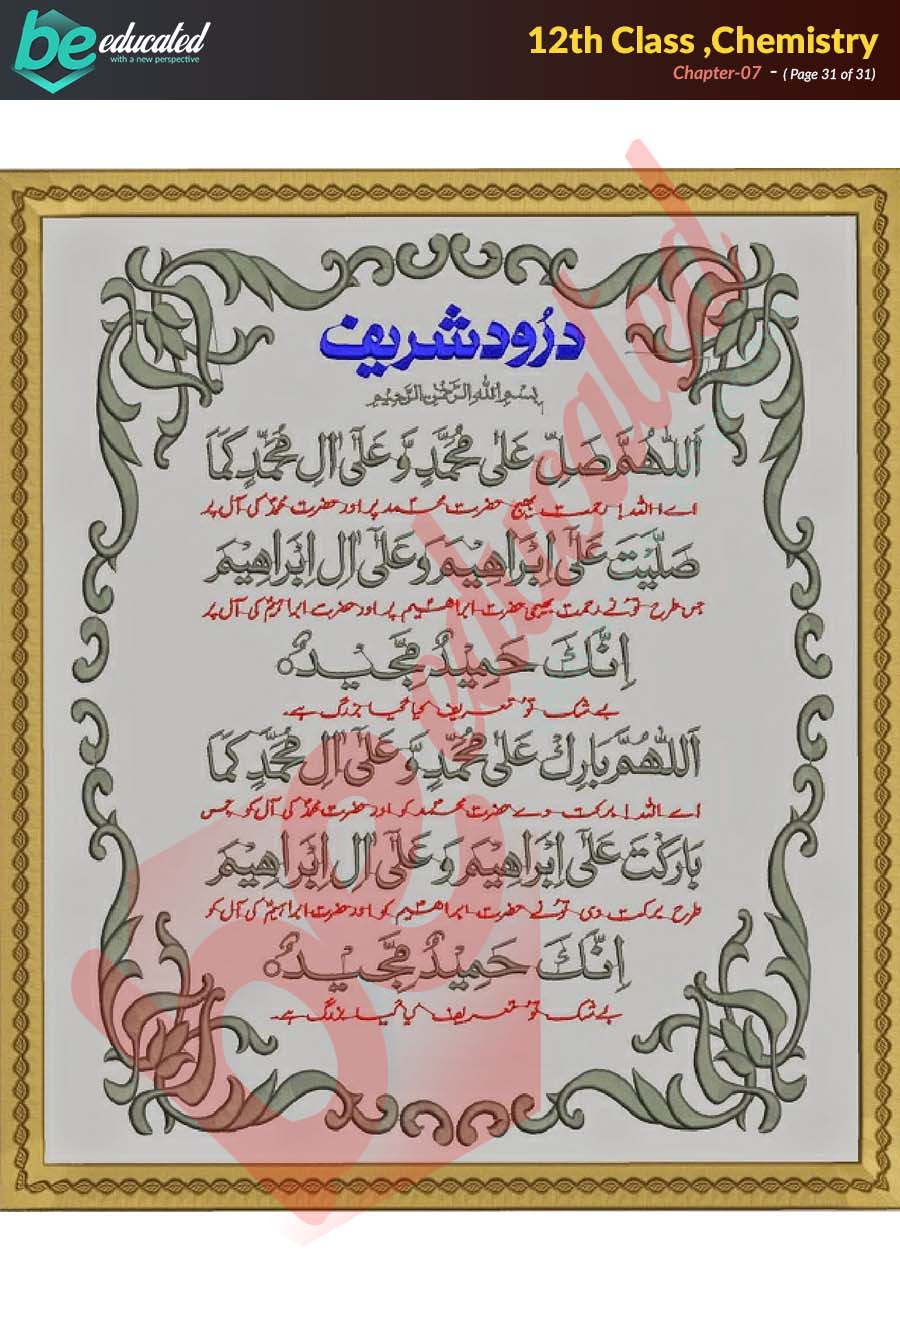 be educated
with a new perspective
12th Class ,Chemistry
Chapter-07 - ( Page 31 of 31)
دُرُود شریف
بِسْمِ اللهِ الرَّحْمٰنِ الرَّحِيْمِ
اَللّٰهُمَّ صَلِّ عَلٰى مُحَمَّدٍ وَّ عَلٰٓى اٰلِ مُحَمَّدٍ كَمَا
اے اللہ! رحمت بھیج حضرت محمد پر اور حضرت محمدؐ کی آل پر
صَلَّيْتَ عَلٰٓى اِبْرَاهِيْمَ وَ عَلٰٓى اٰلِ اِبْرَاهِيْمَ
جس طرح تونے رحمت بھیجی حضرت ابراھیم پر اور حضرت ابراہیمؑ کی آل پر
اِنَّكَ حَمِيْدٌ مَّجِيْدٌ
بے شک تو تعریف کیا گیا بزرگ ہے۔
اَللّٰهُمَّ بَارِكْ عَلٰى مُحَمَّدٍ وَّ عَلٰٓى اٰلِ مُحَمَّدٍ كَمَا
اے اللہ! برکت دے حضرت محمد کو اور حضرت محمدؐ کی آل کو جس
بَارَكْتَ عَلٰٓى اِبْرَاهِيْمَ وَ عَلٰٓى اٰلِ اِبْرَاهِيْمَ
طرح برکت دی تونے حضرت ابراھیم کو اور حضرت ابراہیمؑ کی آل کو
اِنَّكَ حَمِيْدٌ مَّجِيْدٌ
بے شک تو تعریف کیا گیا بزرگ ہے۔
be educated